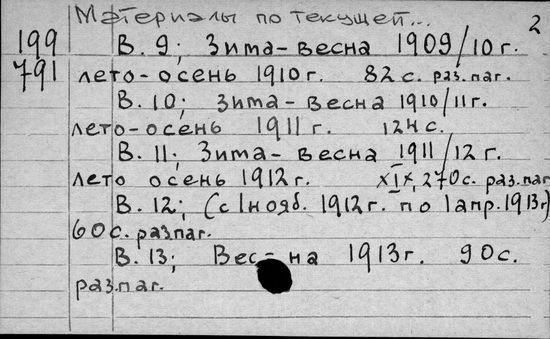 Материалы по текущей... 2
199 В. 9; Зима-весна 1909/10 г.
791 лето-осень 1910 г. 82 с. раз. паг.
В. 10; Зима-весна 1910/11 г.
лето-осень 1911 г. 124 с.
В. 11; Зима-весна 1911/12 г.
лето осень 1912 г. XIX, 270 с. разд. паг
В. 12; (с 1 нояб. 1912 г. по 1 апр. 1913 г)
60 с. разпаг.
В. 13; Вес-на 1913 г. 90 с.
раз.паг.